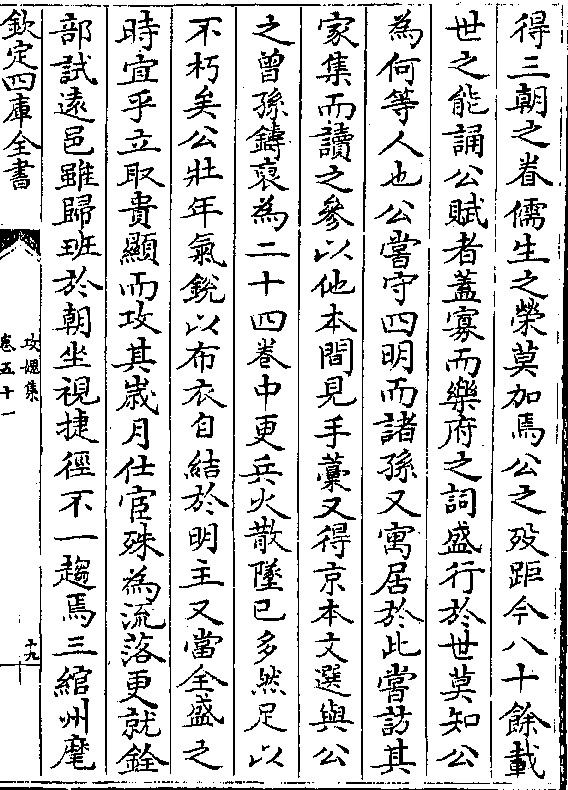 得三朝之眷儒生之榮莫加焉公之歿距今八十餘載
世之能誦公賦者蓋寡而樂府之詞盛行於世莫知公
為何等人也公嘗守四明而諸孫又寓居於此嘗訪其
家集而讀之參以他本間見手藁又得京本文選與公
之曾孫鑄裒為二十四卷中更兵火散墜已多然足以
不朽矣公壯年氣銳以布衣自結於明主又當全盛之
時宜乎立取貴顯而攷其歲月仕宦殊為流落更就銓
部試遠邑雖歸班於朝坐視捷徑不一趨焉三綰州麾
欽定四庫全書
攻媿集
卷五十一
十九